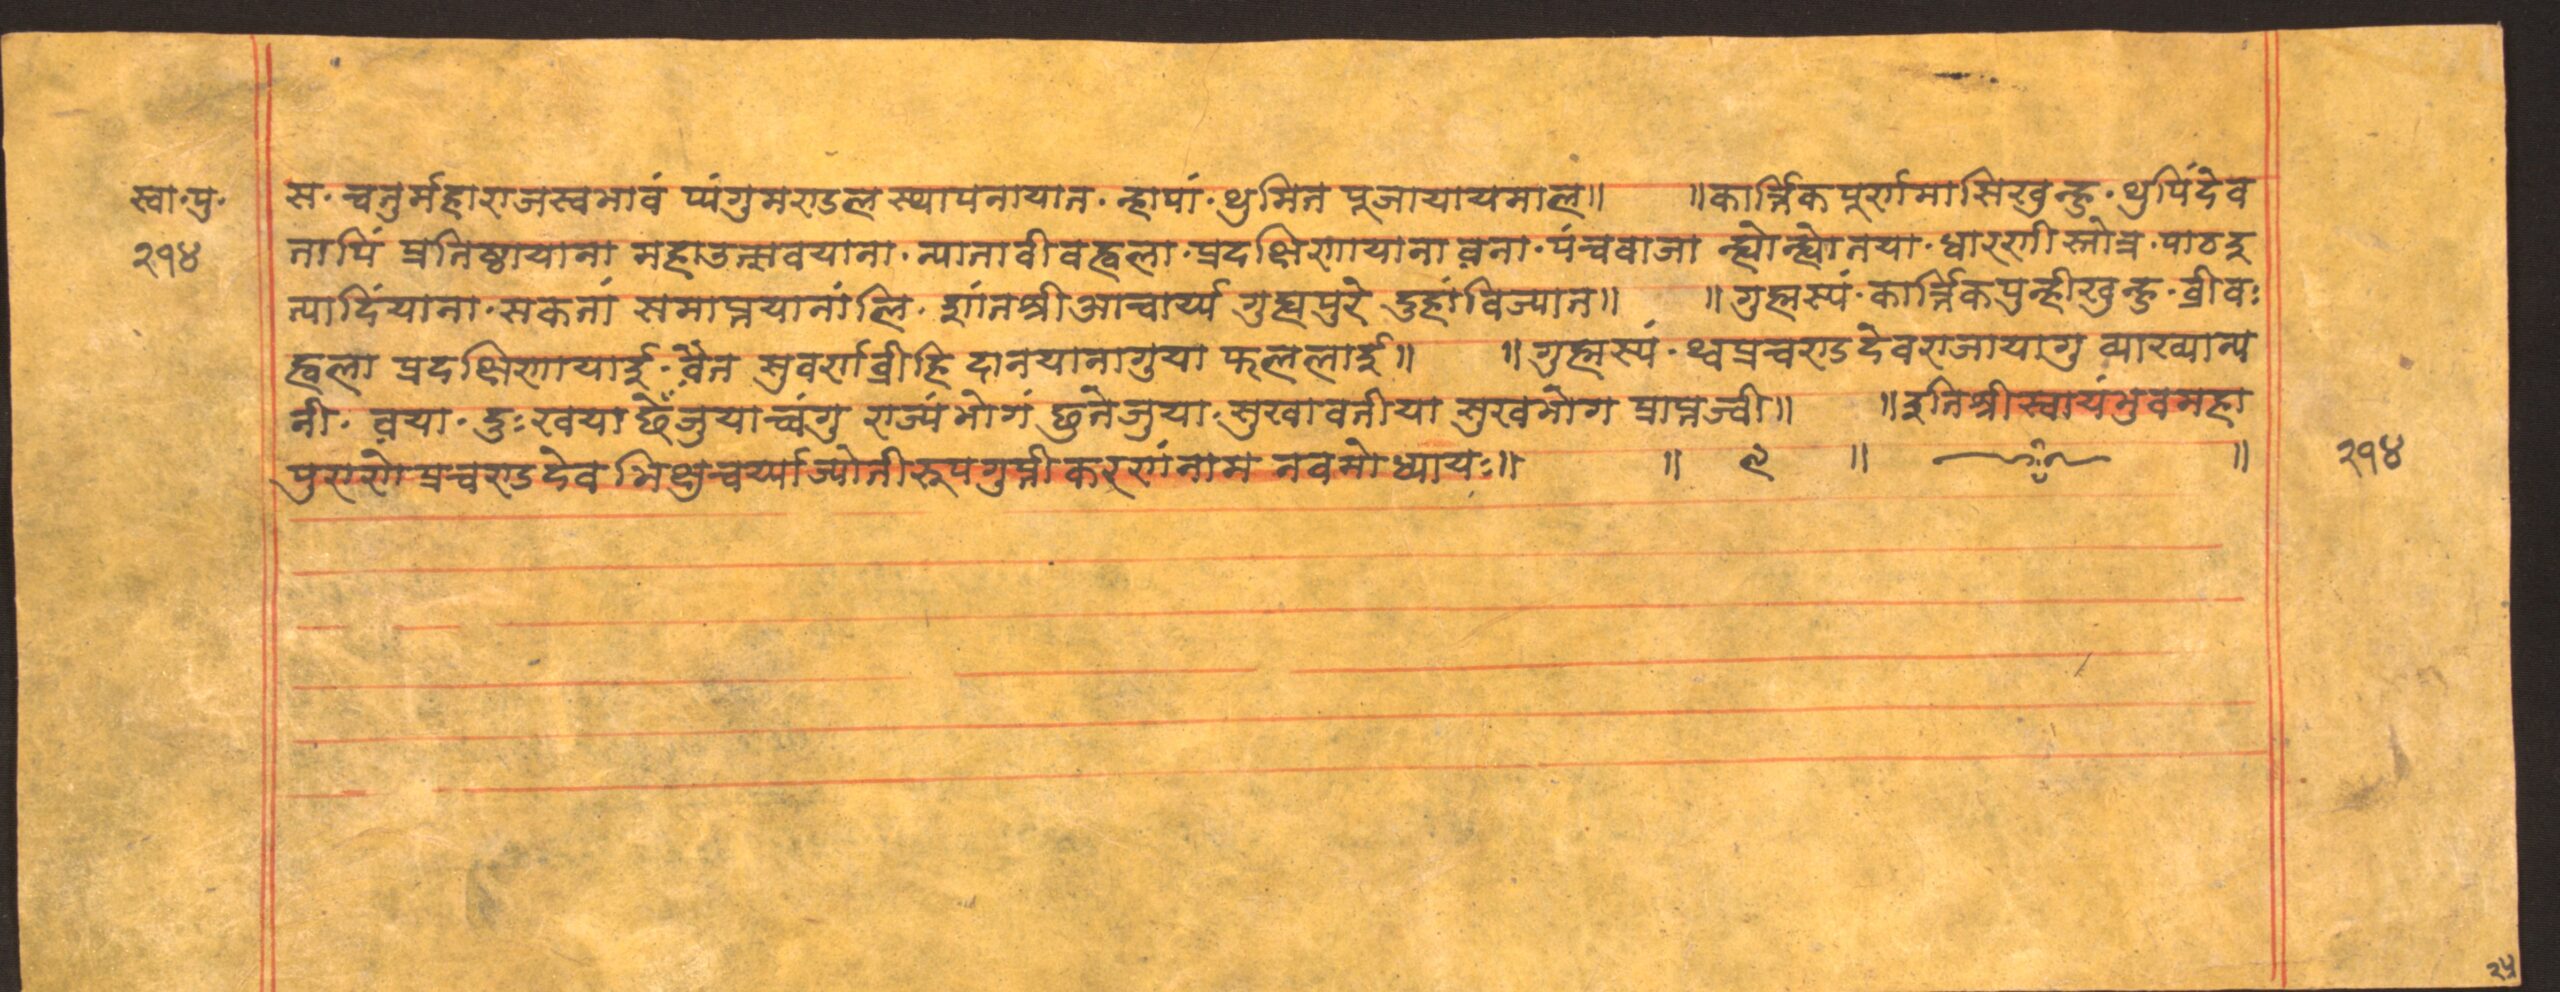 स्वा·पु·
२१४
स· चतुर्महाराजस्वभावं प्यंगुमण्डल स्थापनायात· न्हापां· थुमित पूजायायमाल॥ ॥कार्त्तिक पूर्णमासिखुन्हु· थुपिंदेव
तापिं प्रतिष्ठायाना महाउत्सवयाना· त्यातावीवह्वला· प्रदक्षिणायाना व़ना· पंचवाजा न्ह्योन्ह्योतया· धारणी स्तोत्र· पाठइ
त्यादिंयाना· सकतां समाप्तयानांलि· शांतश्रीआचार्य्य गुह्यपुरे दुहांविज्यात॥ ॥गुह्मस्यं· कार्त्तिकपुन्हीखुन्हु· व्रीवः
ह्वला प्रदक्षिणायाई· व़ैत सुवर्णव्रीहि दानयानागुया फललाई॥ ॥गुह्मस्यं· थ्वप्रचण्डदेवराजायागु व्याख्यान्य
नी· व़या· दुःखया छेँजुयाच्वंगु राज्यंभोगं छुतेजुया· सुखावतीया सुखभोग प्राप्तज्वी॥ ॥इतिश्रीस्वायंभुवमहा
पुराणे प्रचण्डदेव भिक्षुचर्य्याज्योतीरूपगुप्तीकरणंनाम नवमोध्यायः॥ ॥ ९ ॥ ॥
२१४
२५